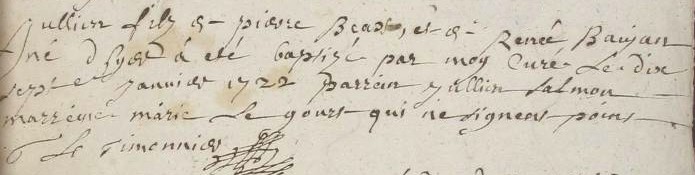 Jullien filz de pierre Beade, et de Renée Baujan
Né d'hyer a eté baptisé par moy Curé Le dix
sept e Janvier 1722 parrein Jullien Salmon
marreine marie Le gours qui ne signent point
Le Timonnier